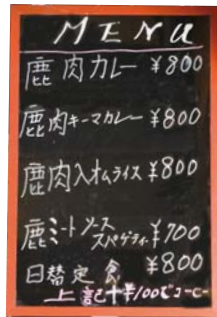 MENU
鹿肉カレー ¥800
鹿肉キーマカレー ¥800
鹿肉入オムライス ¥800
鹿ミートソース
スパゲティー ¥700
日替定食 ¥800
上記+¥100でコーヒー